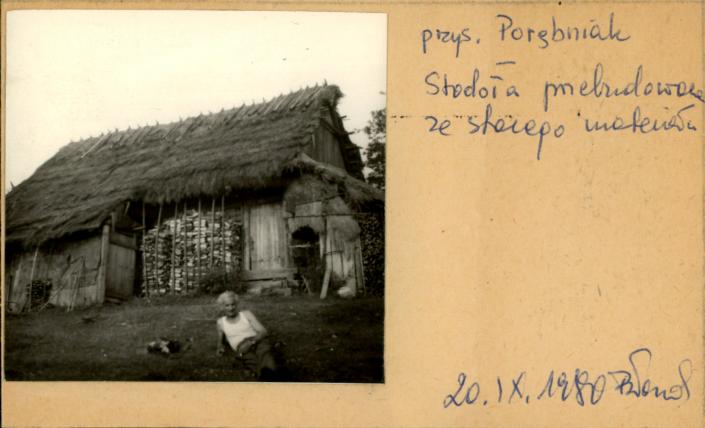 przys. Porębniak
—
Stodoła przebudowana
ze starego materiału
20.IX.1980